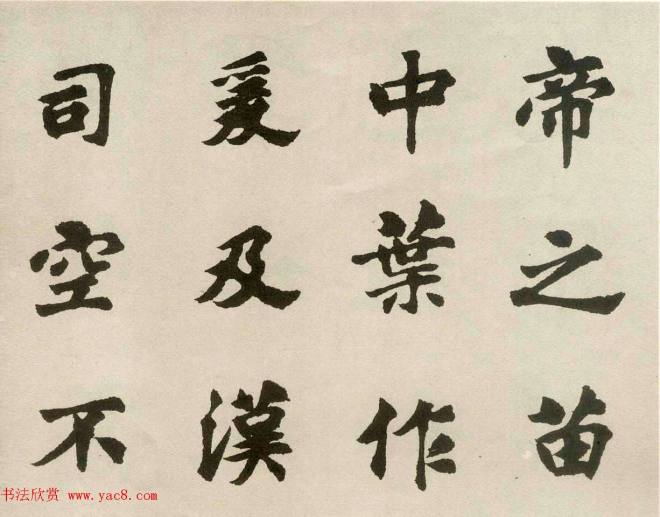 帝之苗
中葉作
爰及漢
司空不
书法欣赏 www.yac8.com